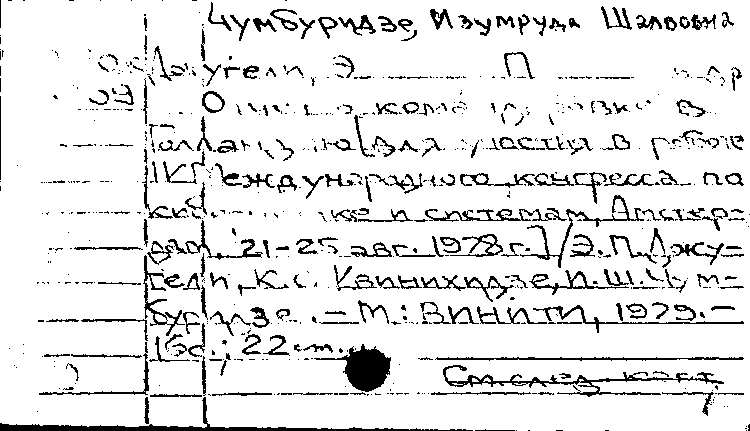 Чумбуридзе, Изумруда Шалвовна
Джугели, Э. П. и др
09 О командировке в
Голландию [для участия в работе
IV Международного конгресса по
кибернетике и системам, Амстер-
дам, 21-25 авг. 1978г.] / Э.П. Джу-
гели, К.С. Квинихидзе, И.Ш. Чум-
буридзе. - М.: ВИНИТИ, 1979. -
15с.; 22 см.
См. след. карт.